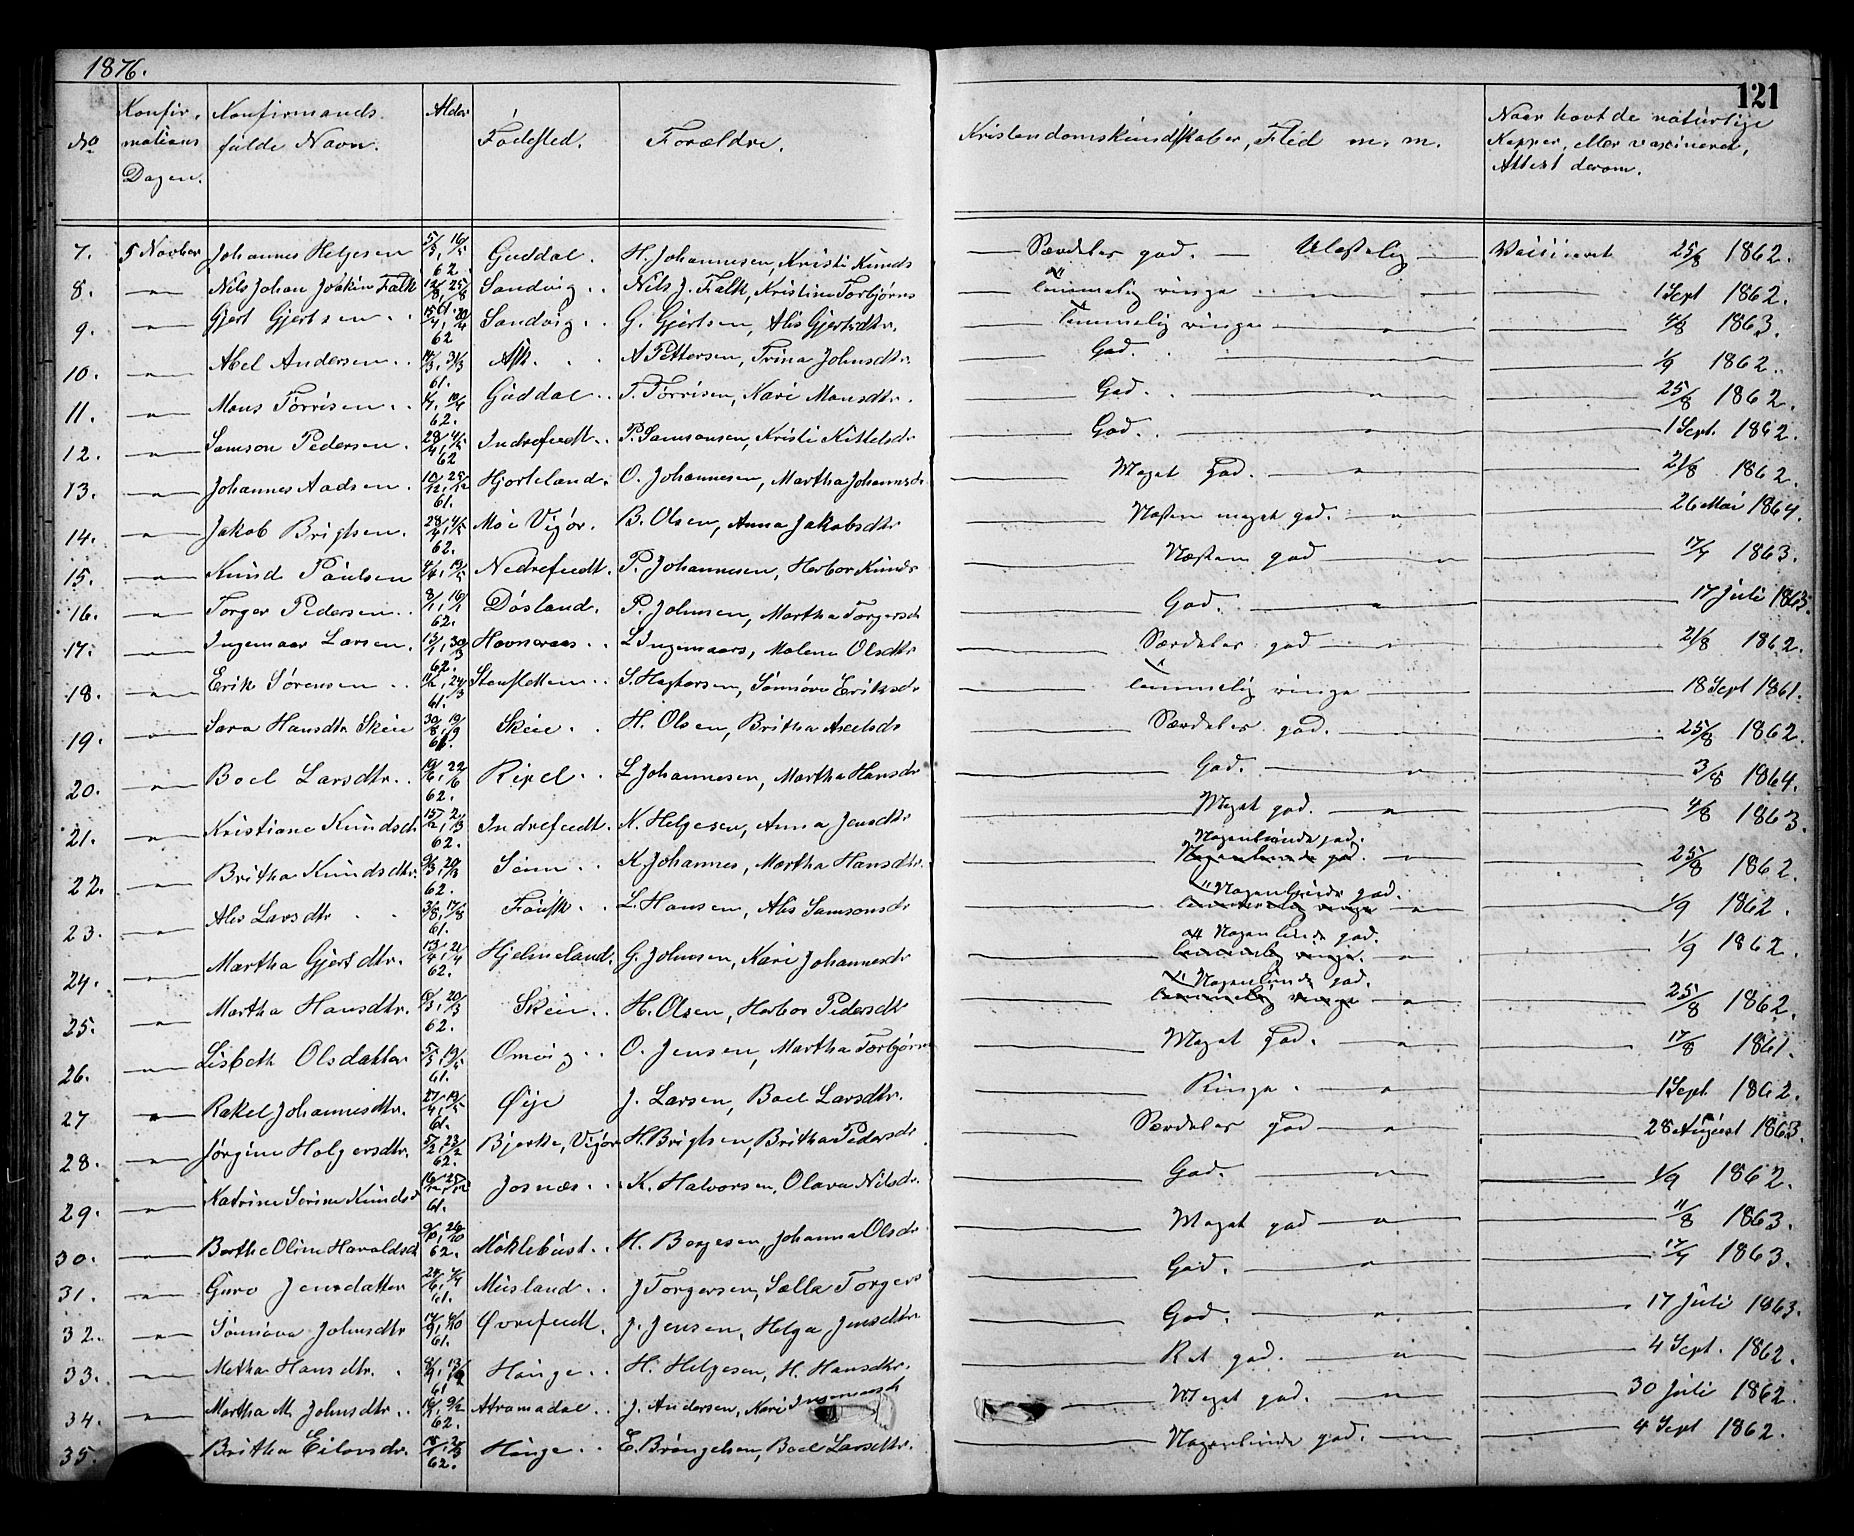 1876.
121
No
Konfir-
mations
Dagen.
Konfirmands
fulde Navn.
Alder
Fødested.
Forældre.
Kristendomskundskaber, Flid m. m.
Naar havt de naturlige
Kopper, eller vaxineret,
Attest derom.
7. 5 Novber Johannes Helgesen 5/5, 16/5 62. Guddal. H. Johannesen, Kristi Knuds Særdeles god. — Ulastelig — Vaccineret 25/8 1862.
8. —„— Nils Johan Joakim Falk Sandvig.. Nils J. Falk, Kristine Torbjørns temmelig ringe 1 Sept 1862.
9. —„— Gjert Gjertsen.. Sandvig.. G. Gjertsen, Alis Gjertsdtr. Temmelig ringe —„— 4/8 1863.
10. —„— Abel Andersen.. 61. Ask. A Pettersen, Trina Johnsdtr. God. —„— 1/9 1862.
11. —„— Mons Torrisen.. 62. Guddal.. T. Torrisen, Kari Monsdtr. God. —„— 25/8 1862.
12. —„— Samson Pedersen. 62 Indrefuedt.. P. Samsonsen, Kristi Kittelsdr God.. —„— 1 Sept. 1862.
13. —„— Johannes Aadsen. 10/12, 25/12 61. Hjorteland. O. Johannesen, Martha Johannsdr Meget God. —„— 21/8 1862.
14. —„— Jakob Brigtsen. 62. Møe Vigør. B. Olsen, Anna Jakobsdtr Næsten meget god. —„— 26 Mai 1864.
15. —„— Knud Paulsen Nedrefuedt. P. Johannesen, Herbor Knuds Næsten god —„— 17/7 1863.
16. —„— Torger Pedersen.. 8/1, 16/1 62. Døsland. P. Johnsen, Martha Torgersdr God. —„— 17 Juli 1863.
17. —„— Ingemaar Larsen. 62. Havneraas.. L Ingemaars, Malena Olsdtr Særdeles god —„— 21/8 1862.
18. —„— Erik Sørensen.. 61. Stenfletten.. S. Hagtorsen, Sønnøva Eriksdr temmelig ringe 18 Sept 1861.
19. —„— Sara Hansdtr Skeie 30/8, 19/9 61. Skeie. H. Olsen, Britha Axelsdr Særdeles god. —„— 25/8 1862.
20. —„— Boel Larsdtr.. 62. Ripel.. L Johannesen, Martha Hansdr God. —„— 3/8 1864.
21. —„— Kristiane Knudsdr 15/2, 2/3 62. Indrefuedt. K. Helgesen, Anna Jensdtr Meget god. —„— 4/8 1863.
22. —„— Britha Knudsdtr. 62. Sönn.. K. Johannes, Martha Hansdtr Nogenlunde god.
Nogenlunde god. —„— 25/8 1862.
23. —„— Alis Larsdtr.. 3/8, 17/8 61. Fausk.. L. Hansen, Alis Samsonsdr Nogenlunde god.
temmelig ringe —„— 1/9 1862.
24. —„— Martha Gjertsdtr. 62. Hjelmeland. G. Johnsen, Kari Johannesdr Nogenlunde god.
temmelig ringe. —„— 1/9 1862.
25. —„— Martha Hansdtr. 62. Skeie.. H. Olsen, Herbor Pedersdtr Nogenlunde god.
temmelig ringe —„— 25/8 1862.
26. —„— Lisbeth Olsdatter 61. Omvig.. O. Jensen, Martha Torbjørns Meget God. —„— 17/8 1861.
27 —„— Rakel Johannesdtr. 61. Øije J. Larsen, Boel Larsdtr. Ringe. —„— 1 Sept 1862.
28. —„— Jørgine Holgersdtr. 62. Bjerke, Vigør H. Brigtsen, Britha Pedersdr Særdeles God —„— 28 August 1863.
29. —„— Katrine Serine Knudsdr 61. Josnæs.. K. Halvorsen, Olava Nilsdr. God. —„— 1/9 1862.
30. —„— Berthe Oline Haraldsdr 62. Møklebust.. H. Borgesen, Johanna Olsdr Meget god —„— 11/8 1863.
31. —„— Guro Jensdatter 61. Musland.. J Torgersen, Sælla Torgers God. —„— 17/7 1863.
32. —„— Sønnøva Johnsdtr 61. Øvrefuedt. J. Jensen, Helga Jensdtr God —„— 17 Juli 1863.
33. —„— Metha Hansdtr. 61 Hauge.. H. Helgesen, H. Hansdtr. Ret god. —„— 4 Sept. 1862.
34. —„— Martha M. Johnsdtr.. 62. Atramadal.. J. Andersen, Kari Ingemarsdr Meget god. —„— 30 Juli 1862.
35. Britha Eilovsdr. 62. Hauge.. E. Brøngelsen, Boel Larsdtr. Nogenlunde god. —„— 4 Sept 1862.